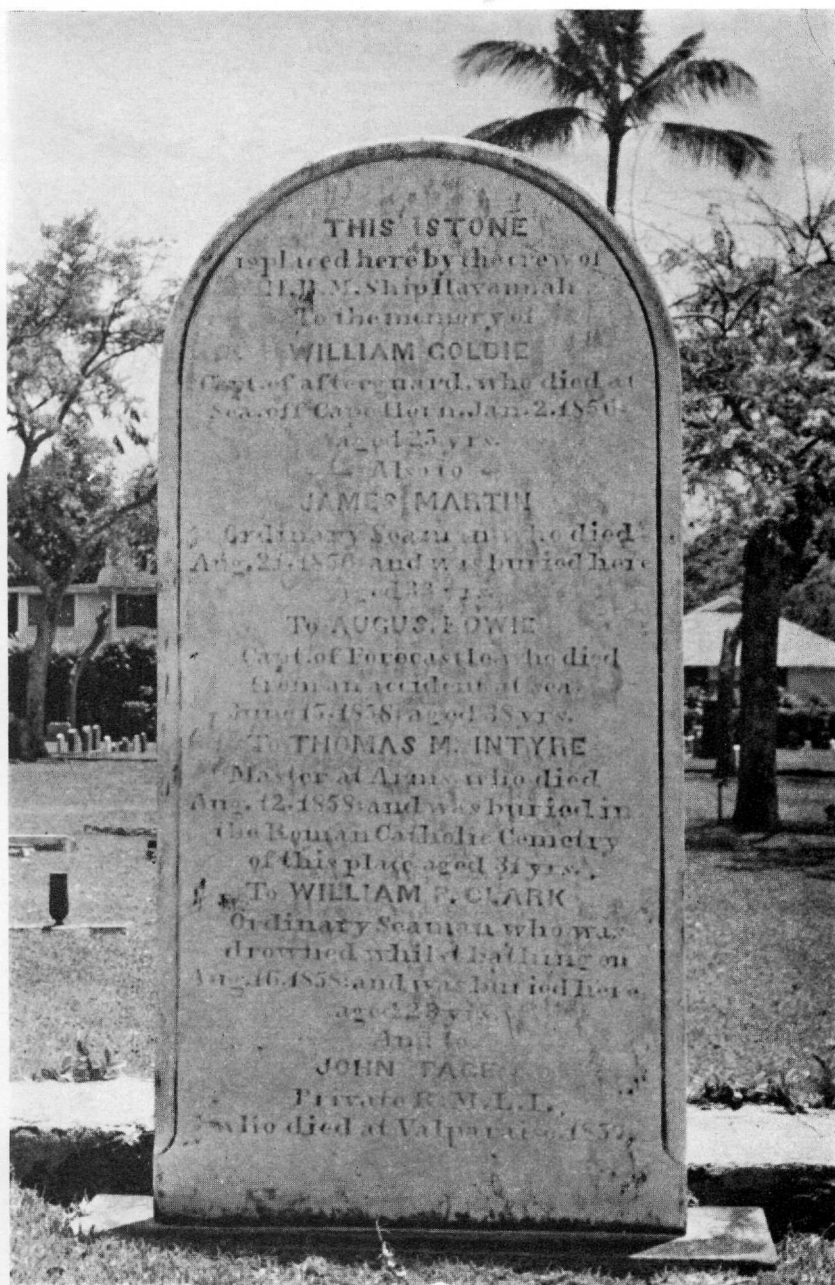 THIS STONE
is placed here by the crew of
H.B.M. Ship Havannah
To the memory of
WILLIAM GOLDIE
Capt. of afterguard, who died at
Sea, off Cape Horn, Jan. 2. 1856
aged 25 yrs.
Also to
JAMES MARTIN
Ordinary Seaman who died
Aug. 21. 1856 and was buried here
aged 33 yrs.
To AUGUS.
Capt. of Forecastle who died
from an accident at sea
June 15. 1858; aged 38 yrs.
To THOMAS M. INTYRE
Master at Arms, who died
Aug. 12. 1858; and was buried in
the Roman Catholic Cemetry
of this place aged 31 yrs.
To WILLIAM P. CLARK
Ordinary Seaman who was
drowned whilst bathing on
Aug. 16. 1858; and was buried here
aged yrs.
And to
JOHN
Private R.M.L.I.
who died at Valparaiso